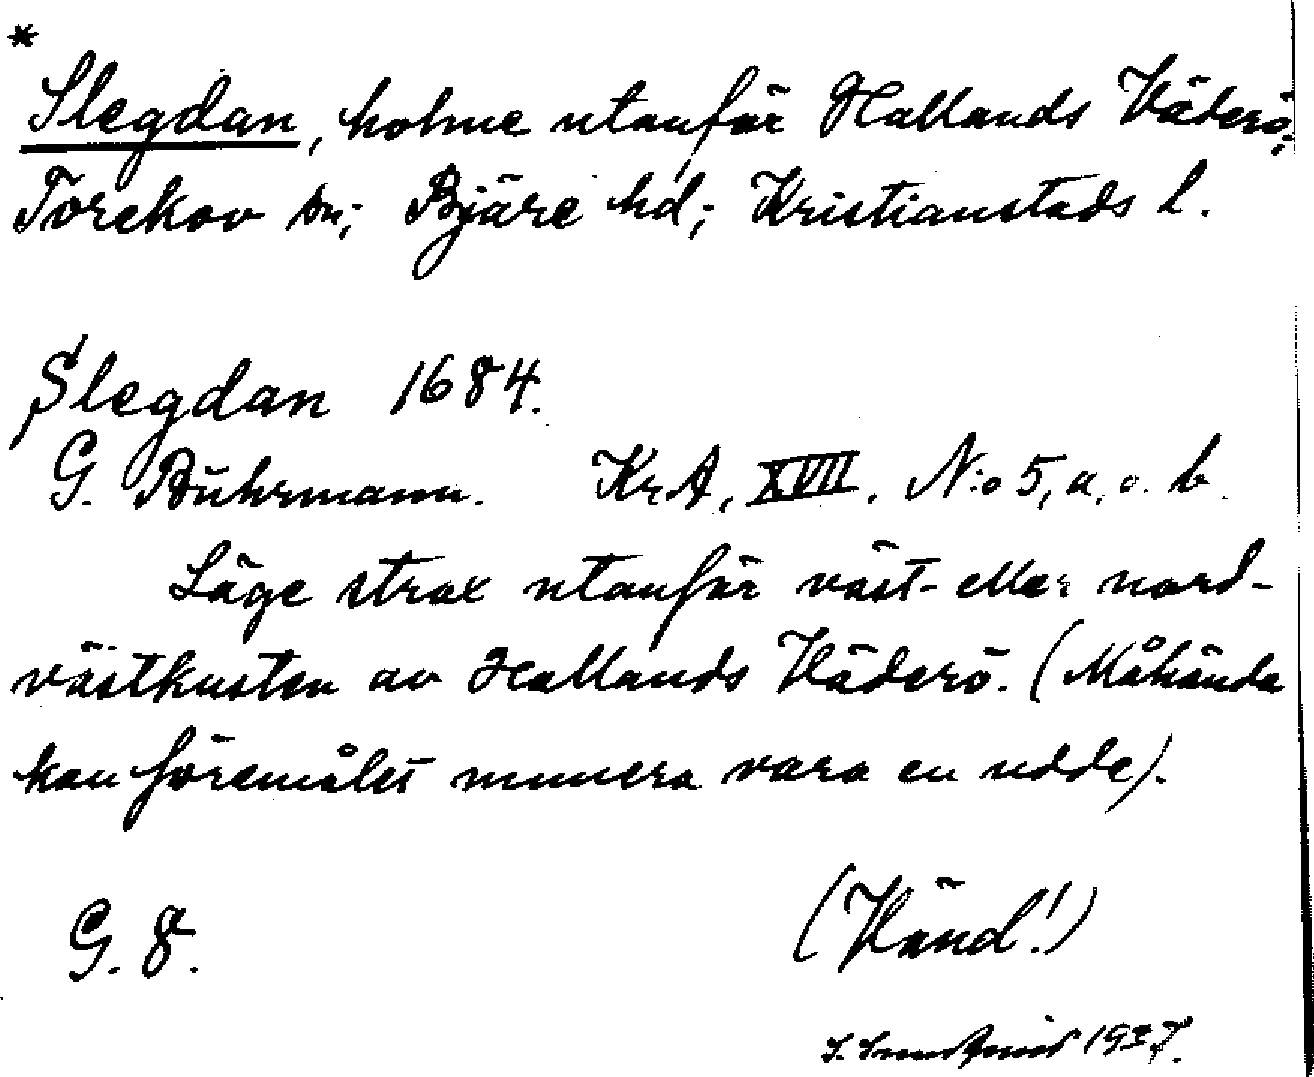 *
Slegdan, holme utanför Hallands Väderö;
Torekov sn; Bjäre hd; Kristianstads l.
Slegdan 1684.
G. Buhrmann. Kr.A, XVII, N:o 5, a, o. b.
Läge strax utanför väst- eller nord-
västkusten av Hallands Väderö. (Måhända
kan föremålet numera vara en udde).
G. 8.
(Vänd!)
1937.